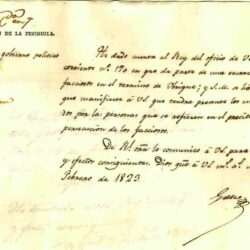 N DE LA PENINSULA.
gobierno politico
He dado cuenta al Rey del oficio de V.
corriente nº 170 en que da parte de una
facciosos en el termino de y S. M. se ha
que manifieste á V. que tendra presente los
dos por la personas que se refieren en el
persecucion de los facciosos.
De Rl. orn lo comunico á V. para
y efectos consiguientes. Dios gue á V. ms. as.
Febrero de 1823.